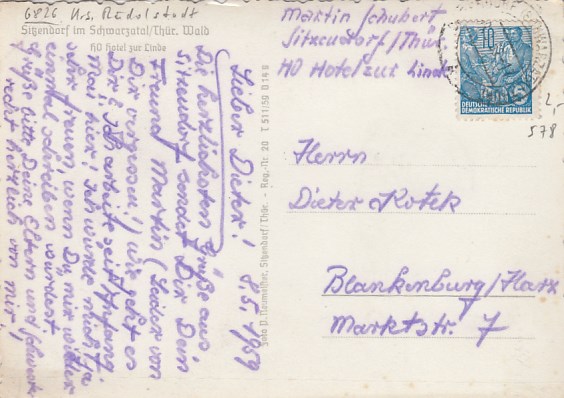 6826 Krs. Rudolstadt
Sitzendorf im Schwarzatal/Thür. Wald
HO Hotel zur Linde
Martin Schubert
Sitzendorf/Thür
HO Hotel zur Linde
10
DEUTSCHE
DEMOKRATISCHE REPUBLIK
2,-
578
Herrn
Dieter Kotek
Blankenburg/Harz
Marktstr. 7
Foto P. Neumeister, Sitzendorf/Thür. - Reg.-Nr. 20 T 511/50 D 14 9
8.5.1959
Lieber Dieter!
Die herzlichsten Grüße aus
Sitzendorf sendet Dir Dein
Freund Martin (Leider von
Dir vergessen) wie geht es
Dir? Ich arbeite seit Anfang
Mai hier. Ich würde mich ja
sehr freuen, wenn Du mir wieder
einmal schreiben würdest
Grüße bitte Deine Eltern und Schwester
recht herzlich von mir!